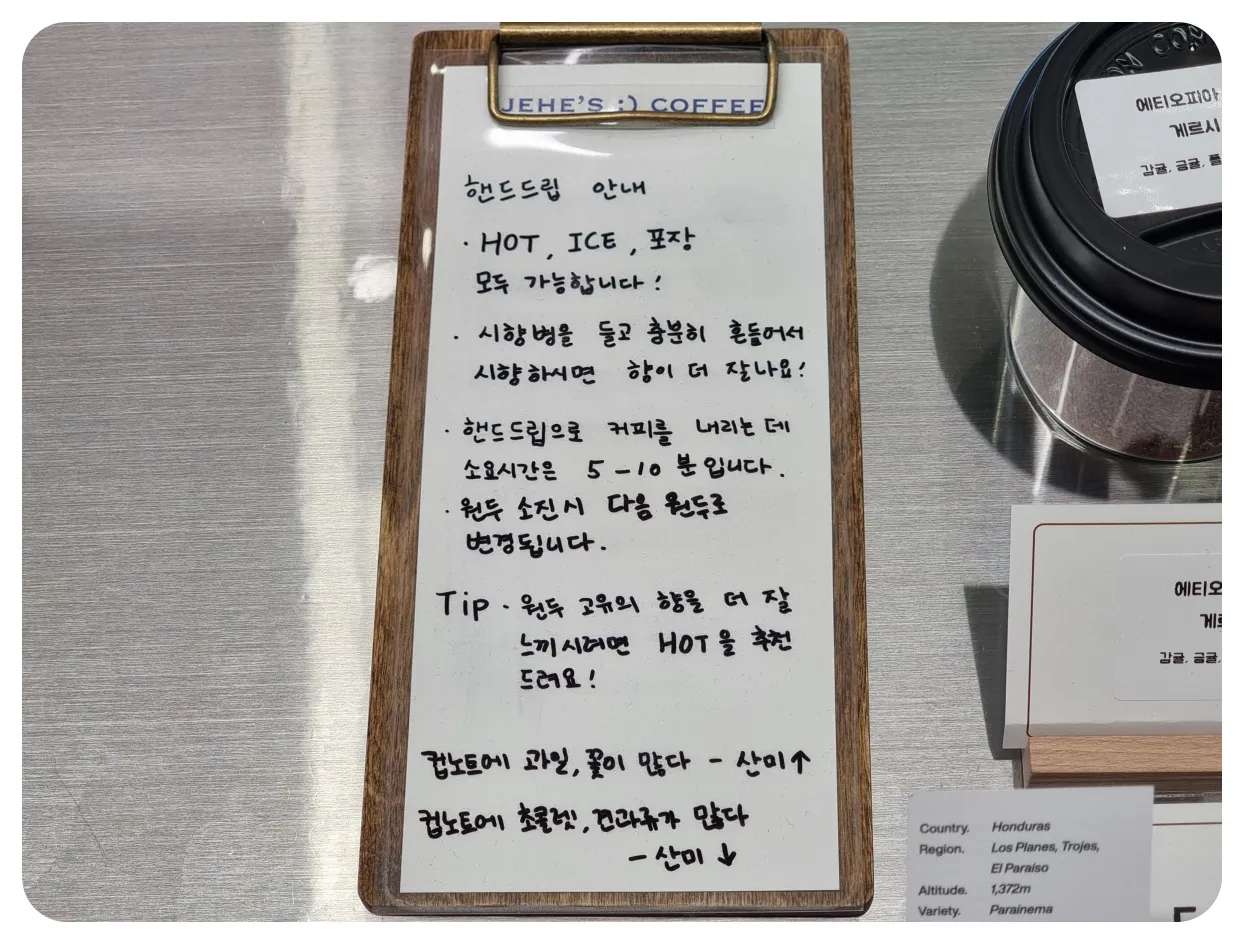 JEHE'S :) COFFEE
핸드드립 안내
· HOT, ICE, 포장
모두 가능합니다!
· 시향병을 들고 충분히 흔들어서
시향하시면 향이 더 잘나요!
· 핸드드립으로 커피를 내리는데
소요시간은 5-10분입니다.
· 원두 소진시 다음 원두로
변경됩니다.
Tip · 원두 고유의 향을 더 잘
느끼시려면 HOT을 추천
드려요!
컵노트에 과일, 꽃이 많다 - 산미↑
컵노트에 초콜렛, 견과류가 많다
- 산미↓
에티오피아
게르시
감귤, 금귤, 플
에티오
게르
감귤, 금귤,
Country. Honduras
Region. Los Planes, Trojes,
El Paraiso
Altitude. 1,372m
Variety. Parainema